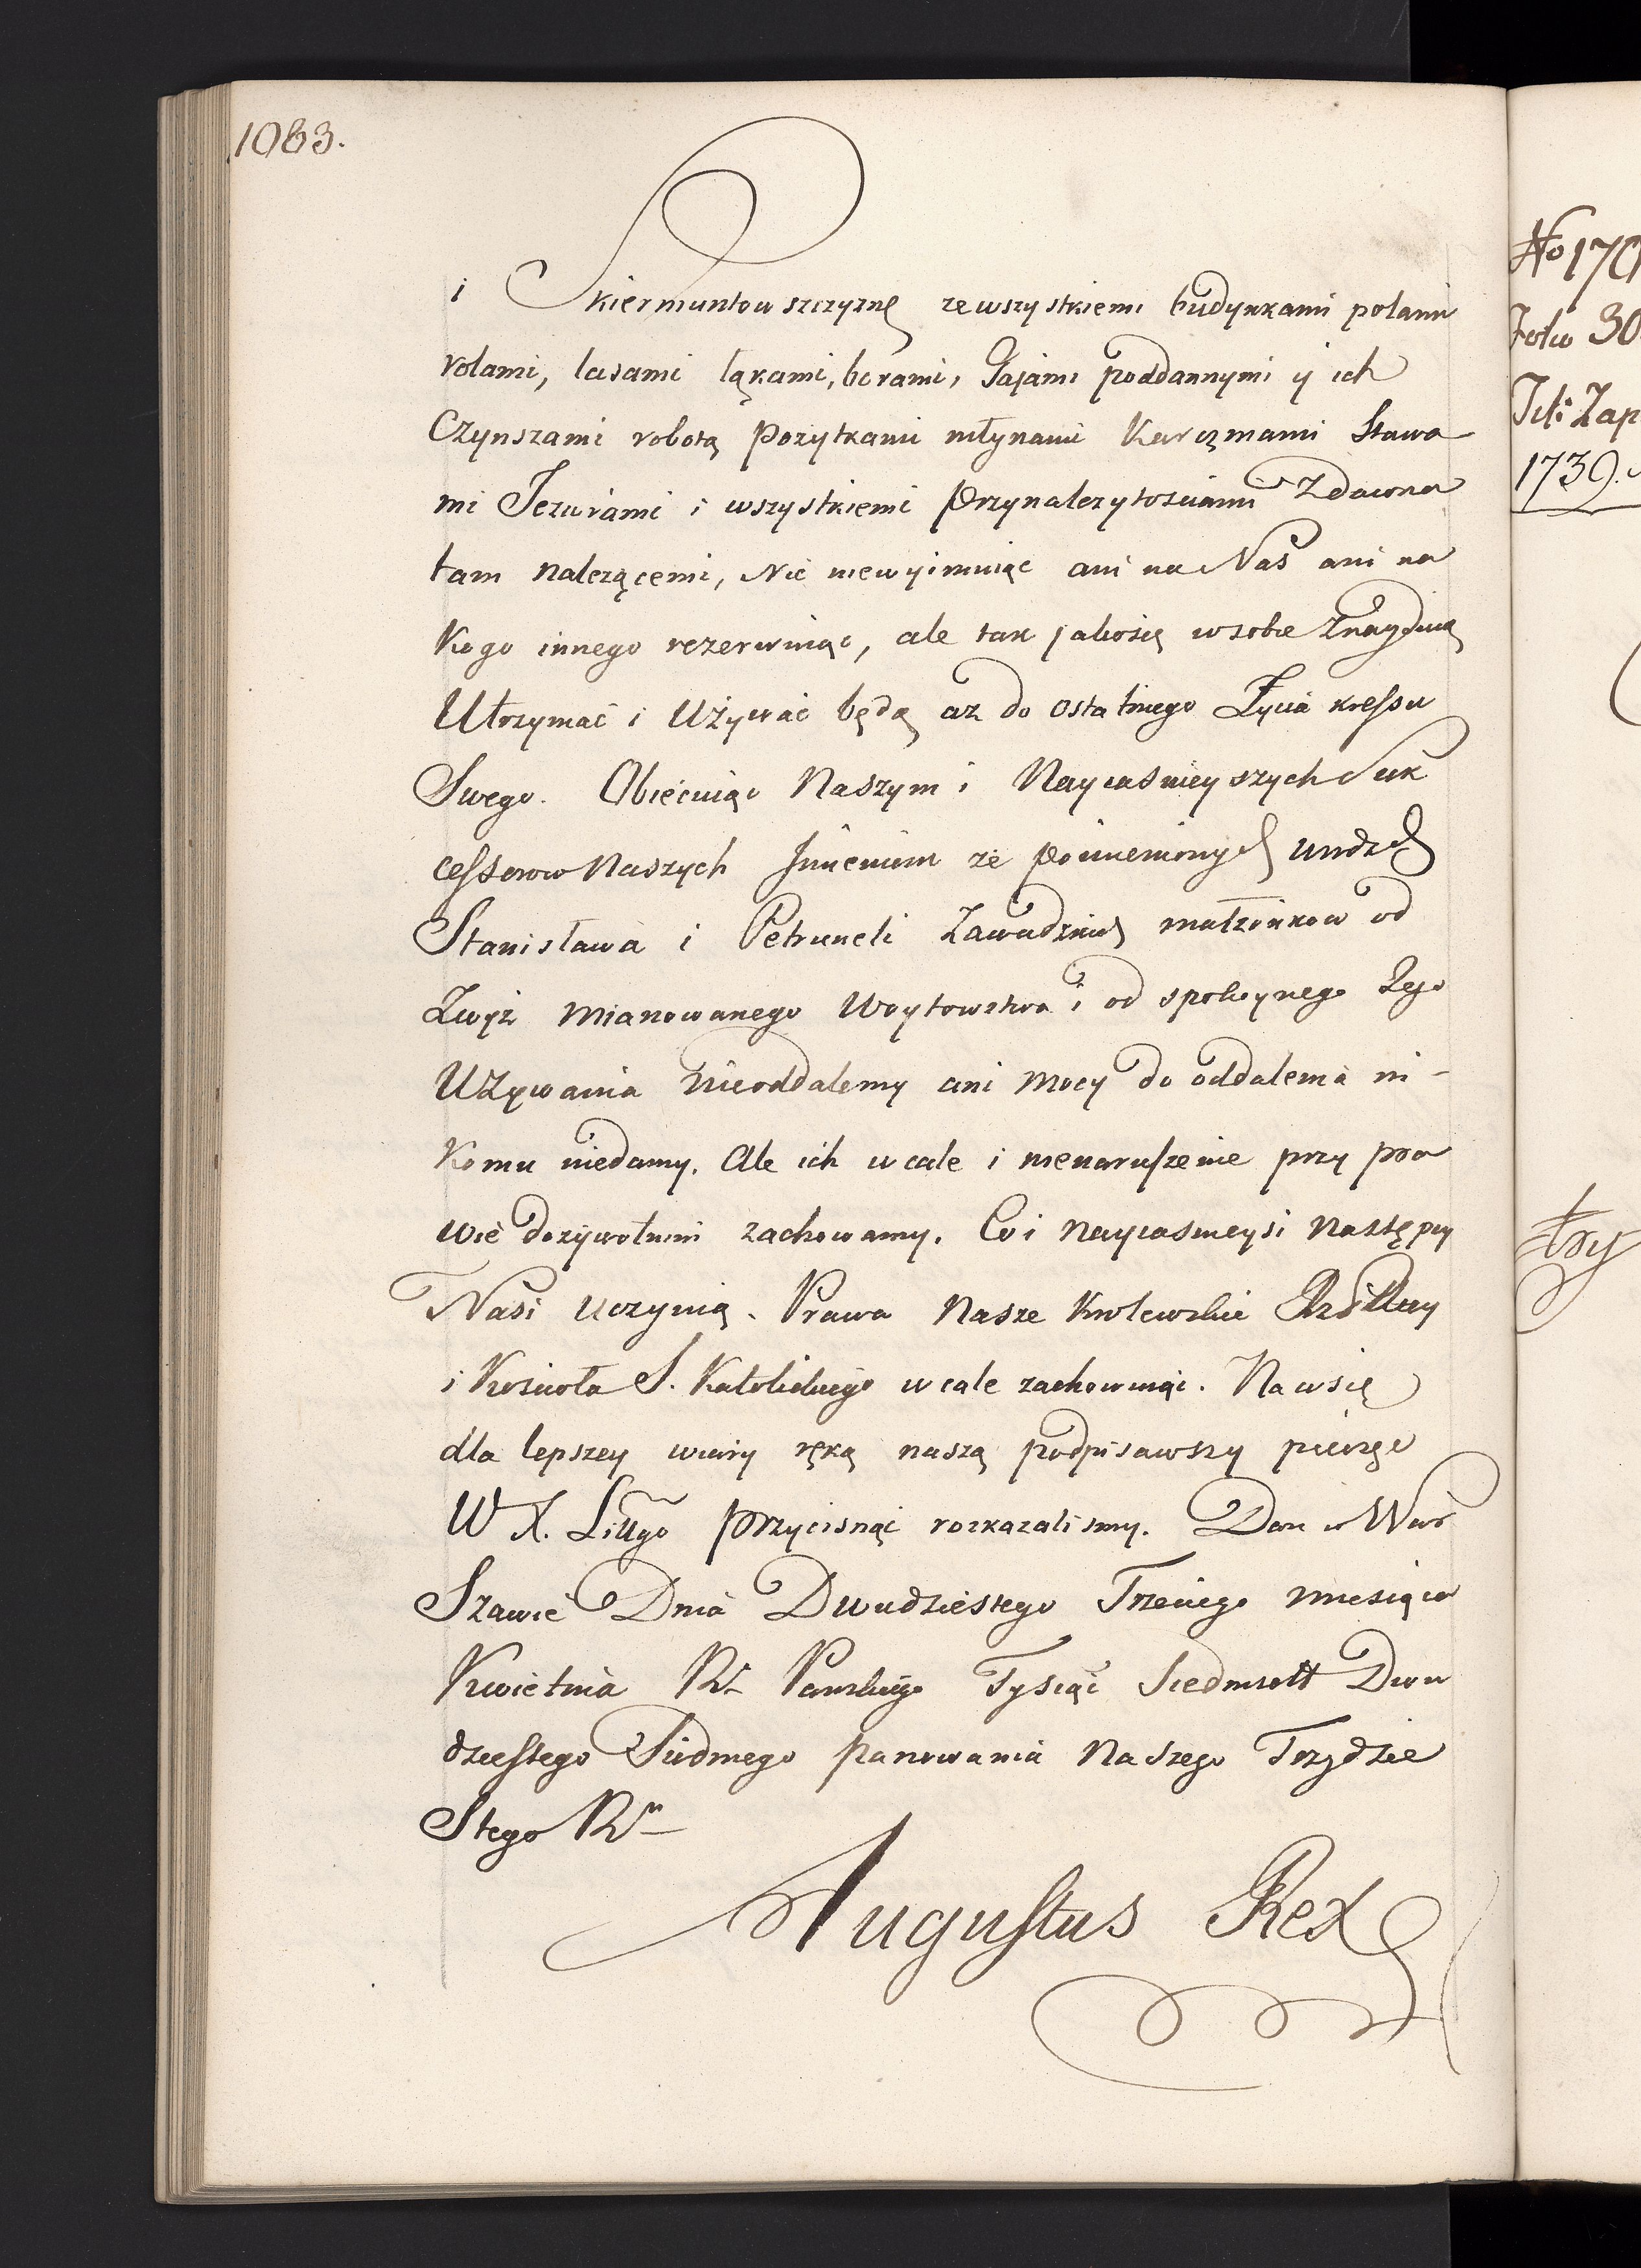 1083.
i Skiermuntowszczyznę zewszystkiemi budynkami polami
rolami, lasami łąkami, borami, Gajami poddannymi y ich
Czynszami robotą pozytkami młynami Karczmami Stawa
mi Jezurami i wszystkiemi przynalezytosciami Zdawna
tam nalezącemi, Nic niewyimuiąc ani na Nas ani na
Kogo innego rezerwuiąc, ale tak jakosię wsobie Znayduią
Utrzymać i Używać będą az do ostatniego Życia kressu
Swego. Obiecuiąc Naszym i Nayiasnieyszych Suk
cessorow Naszych Jmieniem ze pomienionych urodzch
Stanisława i Petruneli Zawadzkich małzonkow od
Zwyż mianowanego Woytowstwa i od spokoynego Jego
Używania nieoddalemy ani mocy do oddalenia ni-
Komu niedamy. Ale ich wcale i nienaruszenie przy pra
wie dozywotnim zachowamy. Co i Nayiasnieysi Następcy
Nasi uczynią. Prawa Nasze Krolewskie Rzpltey
i Kościoła S. Katolickiego wcale zachowuiąc. Nacosię
dla lepszey wiary ręką naszą podpisawszy pieczęc
W X. Littgo przycisnąć rozkazalismy. Dan w War
Szawie Dnia Dwudziestego Trzeciego miesiąca
Kwietnia Rᵘ Panskiego Tysiąć Siedmsett Dwu
dziestego Siudmego panowania Naszego Trzydzie
Stego Rᵘ
Augustus Rex
No 170
Folio 30
1739.